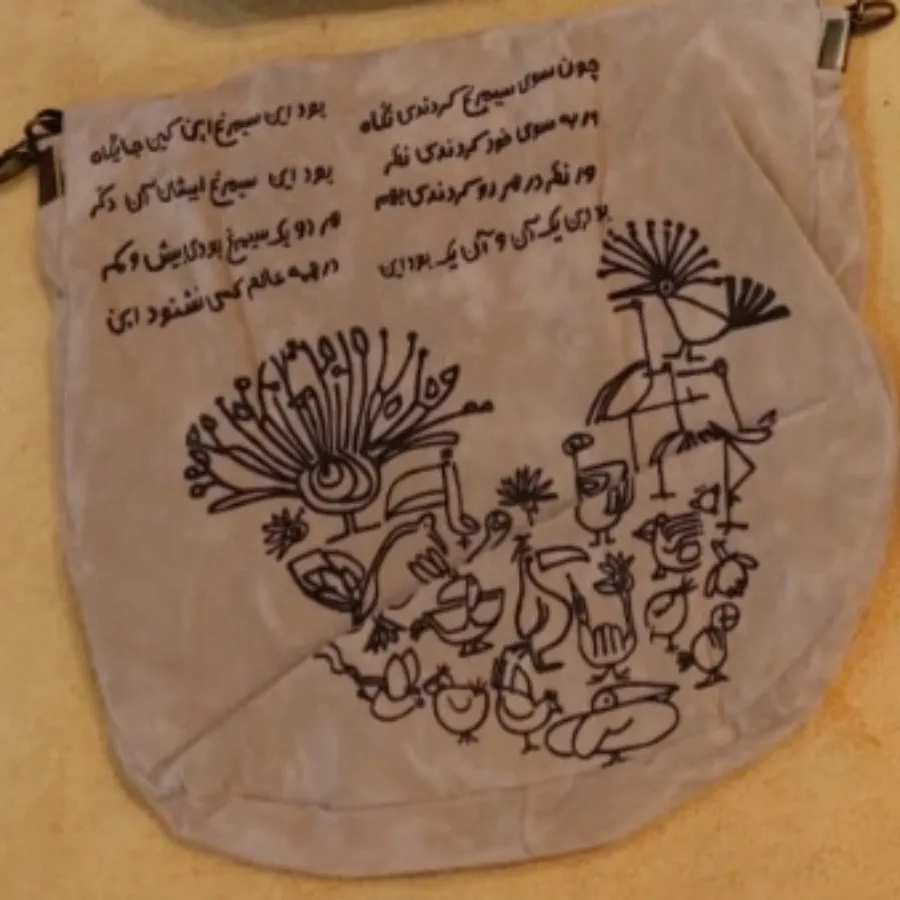 چون سوی سیمرغ کردندی نگاه    بود این سیمرغ این کین جایگاه
ور به سوی خود کردندی نظر    بود این سیمرغ ایشان آن دگر
ور نظر در هر دو کردندی بهم    هر دو یک سیمرغ بودی بیش و کم
بود این یک آن و آن یک بود این    در همه عالم کسی نشنود این